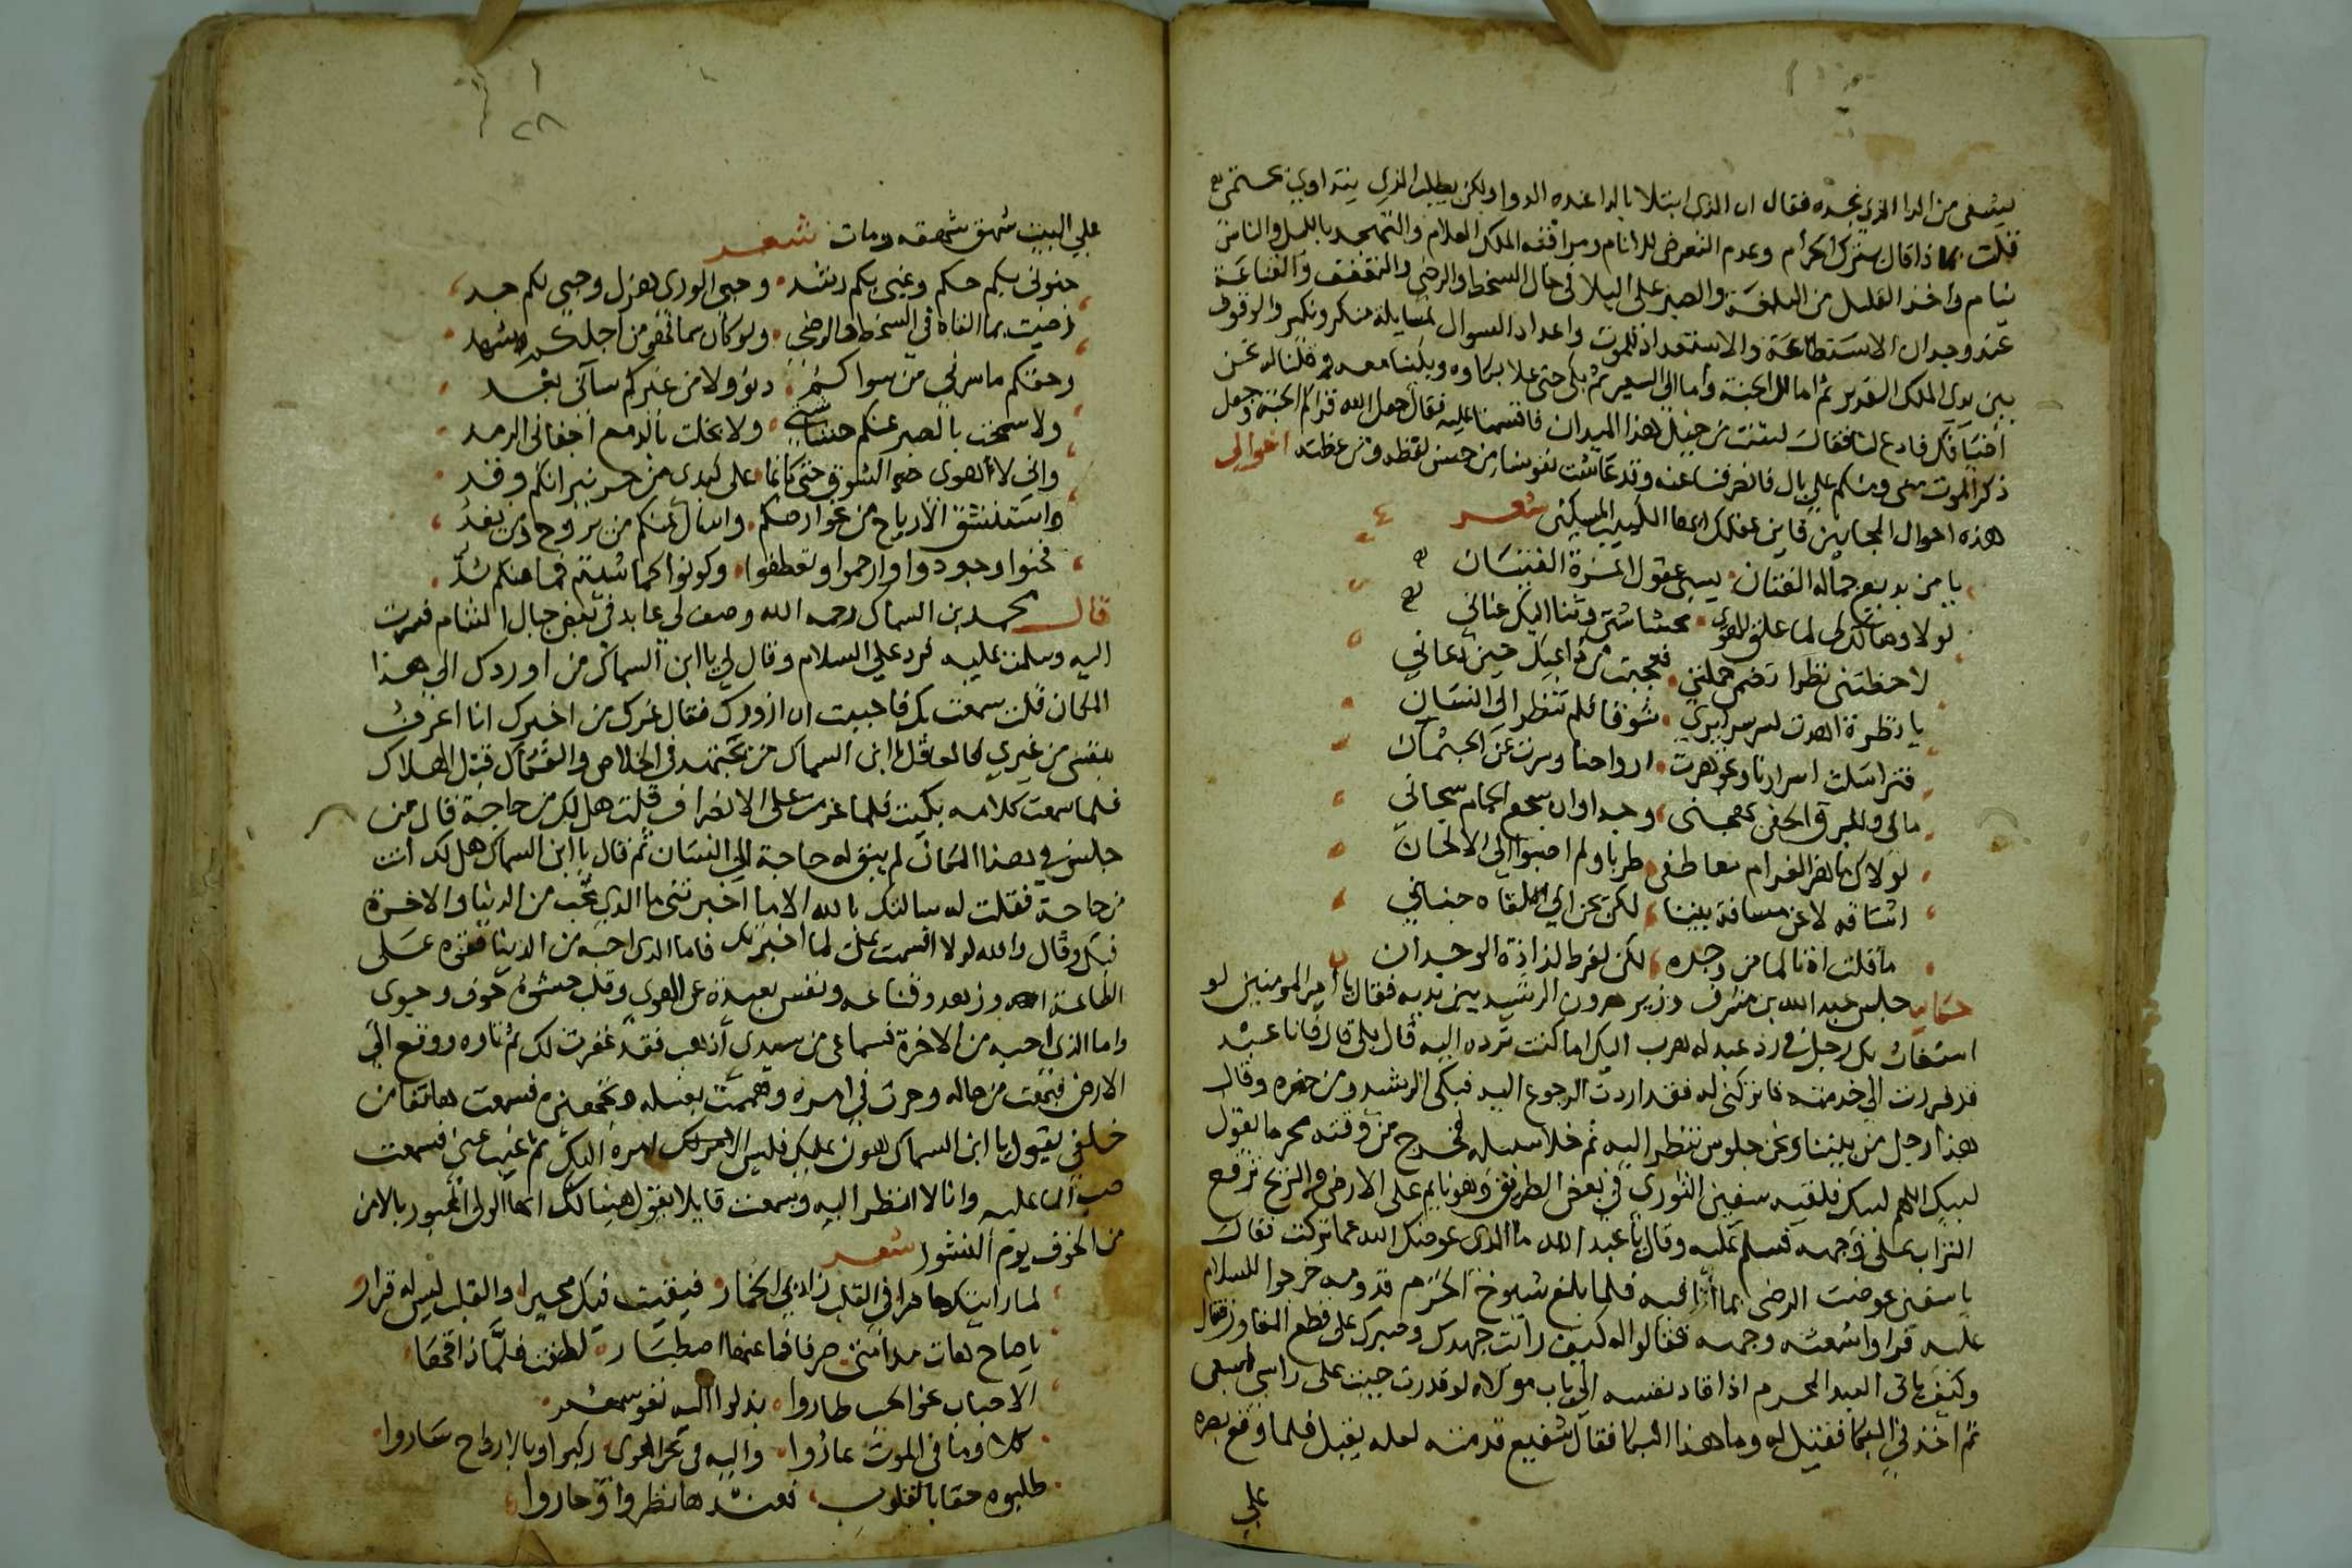 ليشفى من الدا الذي نجده فقال ان الذي ابتلا بالدا عنده الدوا ولكن يطلب الذي يتداوي يحتمي
قلت بماذا قال بترك الحرام وعدم التعرض للانام ومراقبه الملك العلام والتهجد بالليل والناس
نيام واخذ القليل من البلغة والصبر على البلا في حال السخط والرضى والتعفف والقناعة
عند وجدان الاستطاعة والاستعداد للموت واعداد السوال لمسايلة منكر ونكير والوقوف
بين يدي الملك القدير ثم اما الى الجنة واما الي السعير ثم بكى حتى علا بكاوه وبكينا معه وقلنا له نحن
اضيافك فادع لنا فقال لست من خيل هذا الميدان فاقسمنا عليه فقال جعل الله قراكم الجنة وجعل
ذكر الموت مني ومنكم على بال فانصرفنا عنه وقد عاشت نفوسنا من حسن لفظه ومن عظته اخواني
هذه احوال المجانين فاين عقلك ايها اللبيب المسكين شعر
يا من بديع جماله الفتان يسبي عقول
لولا وهاتك لي لما علق الهوى بحشاشتي وثنا اليك عناني
لاحظتني نظرا تضمن حملتي فعجبت من داعيك حين دعاني
يا نظرة اهدت لسر سرايري شوقا فلم تنظر الى انسان
فتراسلت اسرارنا وتجوهرت ارواحنا وسرت عن الجثمان
مالي وللبرق الخفي يهيجني وجدا وان سجع الحمام سجاني
لولاك ما هز الغرام معاطفي طربا ولم اصبوا الى الالحان
اشتاقه لا عن مسافة بيننا لكن يحن الى اللقاه جناني
ما قلت اه تالما من وجده لكن لفرط لذاذة الوجدان
حكاية جلس عبد الله بن مشرف وزير هرون الرشيد بين يديه فقال يا امير المومنين لو
استغاث بك رجل في رد عبد له هرب اليك اما كنت ترده اليه قال بلى قال فانا عبد
قد فررت الي خدمته فاتركني له فقد اردت الرجوع اليه فبكى الرشيد ومن حضره وقال
هذا رجل من بيننا ونحن جلوس ننظر اليه ثم خلا سبيله فخرج من وقته محرما يقول
لبيك اللهم لبيك فلقيه سفين الثوري في بعض الطريق وهو نايم على الارض والريح ترفع
التراب على وجهه فسلم عليه وقال يا عبد الله ما الذي عوضك الله عما تركت فقال
يا سفين عوضت الرضى بما انا فيه فلما بلغ شيوخ الحرم قدومه خرجوا للسلام
عليه فراوا شعثه وجهه فقالوا له كيف رايت جهدك وصبرك على قطع المفاوز فقال
وكيف ياتي العبد المجرم اذا قاد نفسه الي باب مولاه لو قدرت جيت على راسي اسعى
ثم اخذ في البكا فقيل له وما هذا البكا فقال شفيع قدمته لعله يقبل فلما وقع بصره
علي
علي البيت شهق شهقه ومات شعر
جنوني بكم حكم وغيي بكم رشد وحبي الورى هزل وحبي لكم جد
رضيت بما القاه في السخط والرضى ولو كان سما فهو من اجلكم شهد
وحقكم ما سرني من سواكم دنو ولا من غيركم سآني بعد
ولا سمحت بالصبر عنكم حشاشتي ولا بخلت بالدمع اجفاني الرمد
واني لاهوى حر الشوق حتى كانما على كبدي من حر نيرانكم وقد
واستنشق الارياح من نحو ارضكم واسال عنكم من يروح ومن يغد
فحنوا وجودوا وارحموا وتعطفوا وكونوا كما شيتم فما منكم بد
قال محمد بن السماك رحمه الله وصف لي عابد في بعض جبال الشام فسرت
اليه وسلمت عليه فرد علي السلام وقال لي يا ابن السماك من اوردك الي هذا
المكان قلت سمعت بك فاحببت ان ازورك فقال غرك من اخبرك انا اعرف
بنفسي من غيري فالعاقل يا ابن السماك من يجتهد في الخلاص والفكاك قبل الهلاك
فلما سمعت كلامه بكيت فلما عزمت على الانصراف قلت هل لك من حاجة قال من
جلس في هذا المكان لم يبق له حاجة الى انسان ثم قال يا ابن السماك هل لك انت
من حاجة فقلت له سالتك بالله الا ما اخبرتني ما الذي تحب من الدنيا والاخرة
فبكى وقال والله لولا اقسمت علي لما اخبرتك فاما الذي احبه من الدنيا فقوه على
الطاعة وزهد وقناعه ونفس بعيدة عن الهوى وقلب حشوه خوف وجوى
واما الذي احبه من الاخرة فسماعي من سيدي اذهب فقد غفرت لك ثم تاوه ووقع الي
الارض فعجبت من حاله وحرت في امره وهممت بغسله وتجهيزه فسمعت هاتفا من
خلفي يقول يا ابن السماك هون عليك فليس الامر لك امره اليك ثم غيب عني فسمعت
صب الما عليه وانا لا انظر اليه وسمعت قايلا يقول هنيا لك ايها الولي المحبور بالامن
من الخوف يوم النشور شعر
لما رايتك حاضرا في القلب زاد بي الخمار فبقيت فيك محيرا والقلب ليس له قرار
يا صاح هات مدامتي صرفا فما عنها اصطبار لطفت فلما ذاقها
الاحباب نحو الحب طاروا بذلوا اليه نفوسهم
كلا وما في الموت عاروا واليه في بحر الهوى ركبوا وبالارواح ساروا
طلبوه حقا بالقلوب فعند ها نظروا وحاروا